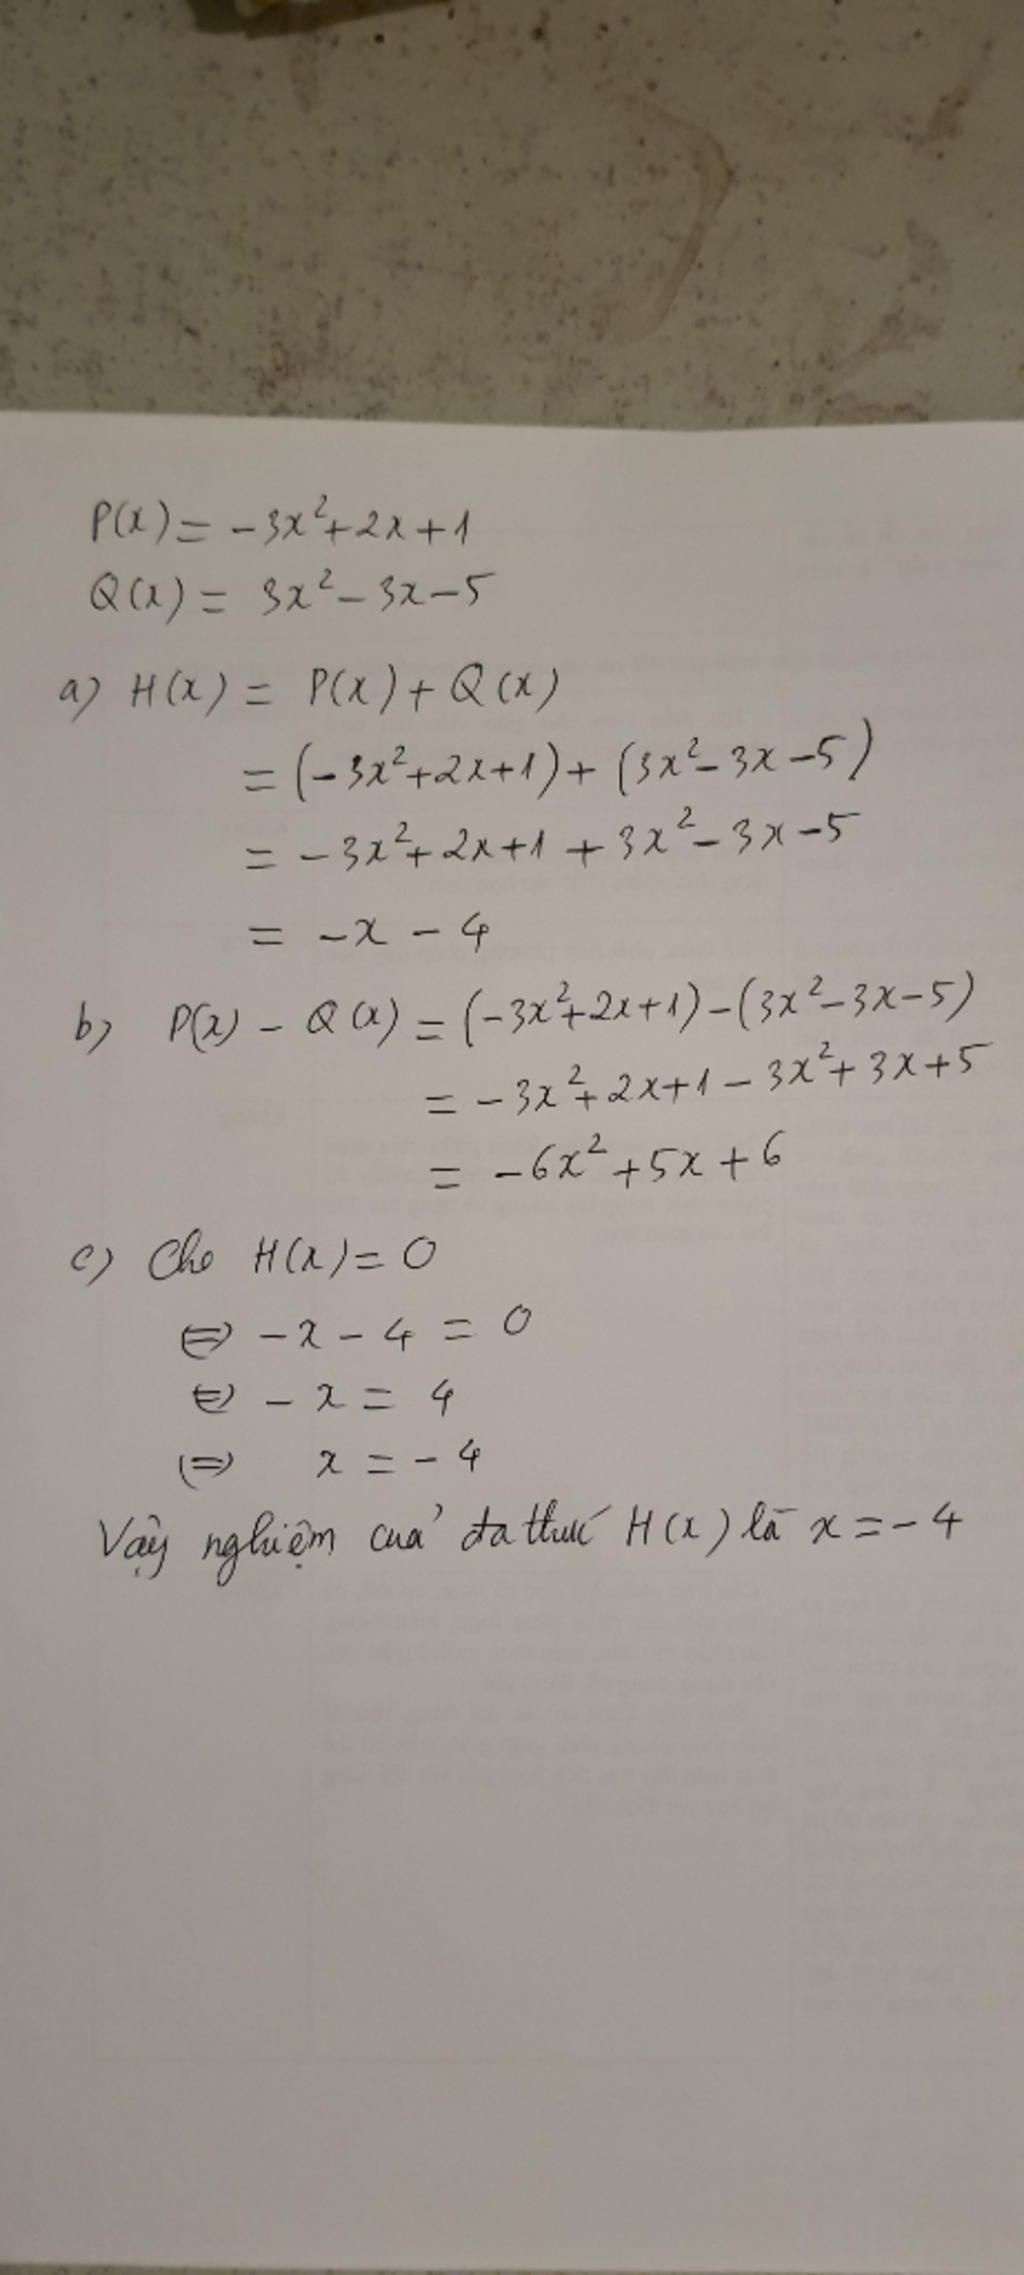 P(x) = -3x²+2x+1
Q(x) = 3x²-3x-5
a) H(x) = P(x)+Q(x)
= (-3x²+2x+1)+(3x²-3x-5)
= -3x²+2x+1+3x²-3x-5
= -x-4
b) P(x)-Q(x) = (-3x²+2x+1)-(3x²-3x-5)
= -3x²+2x+1-3x²+3x+5
= -6x²+5x+6
c) Cho H(x)=0
⇔ -x-4=0
⇔ -x=4
⇔ x=-4
Vậy nghiệm của đa thức H(x) là x=-4